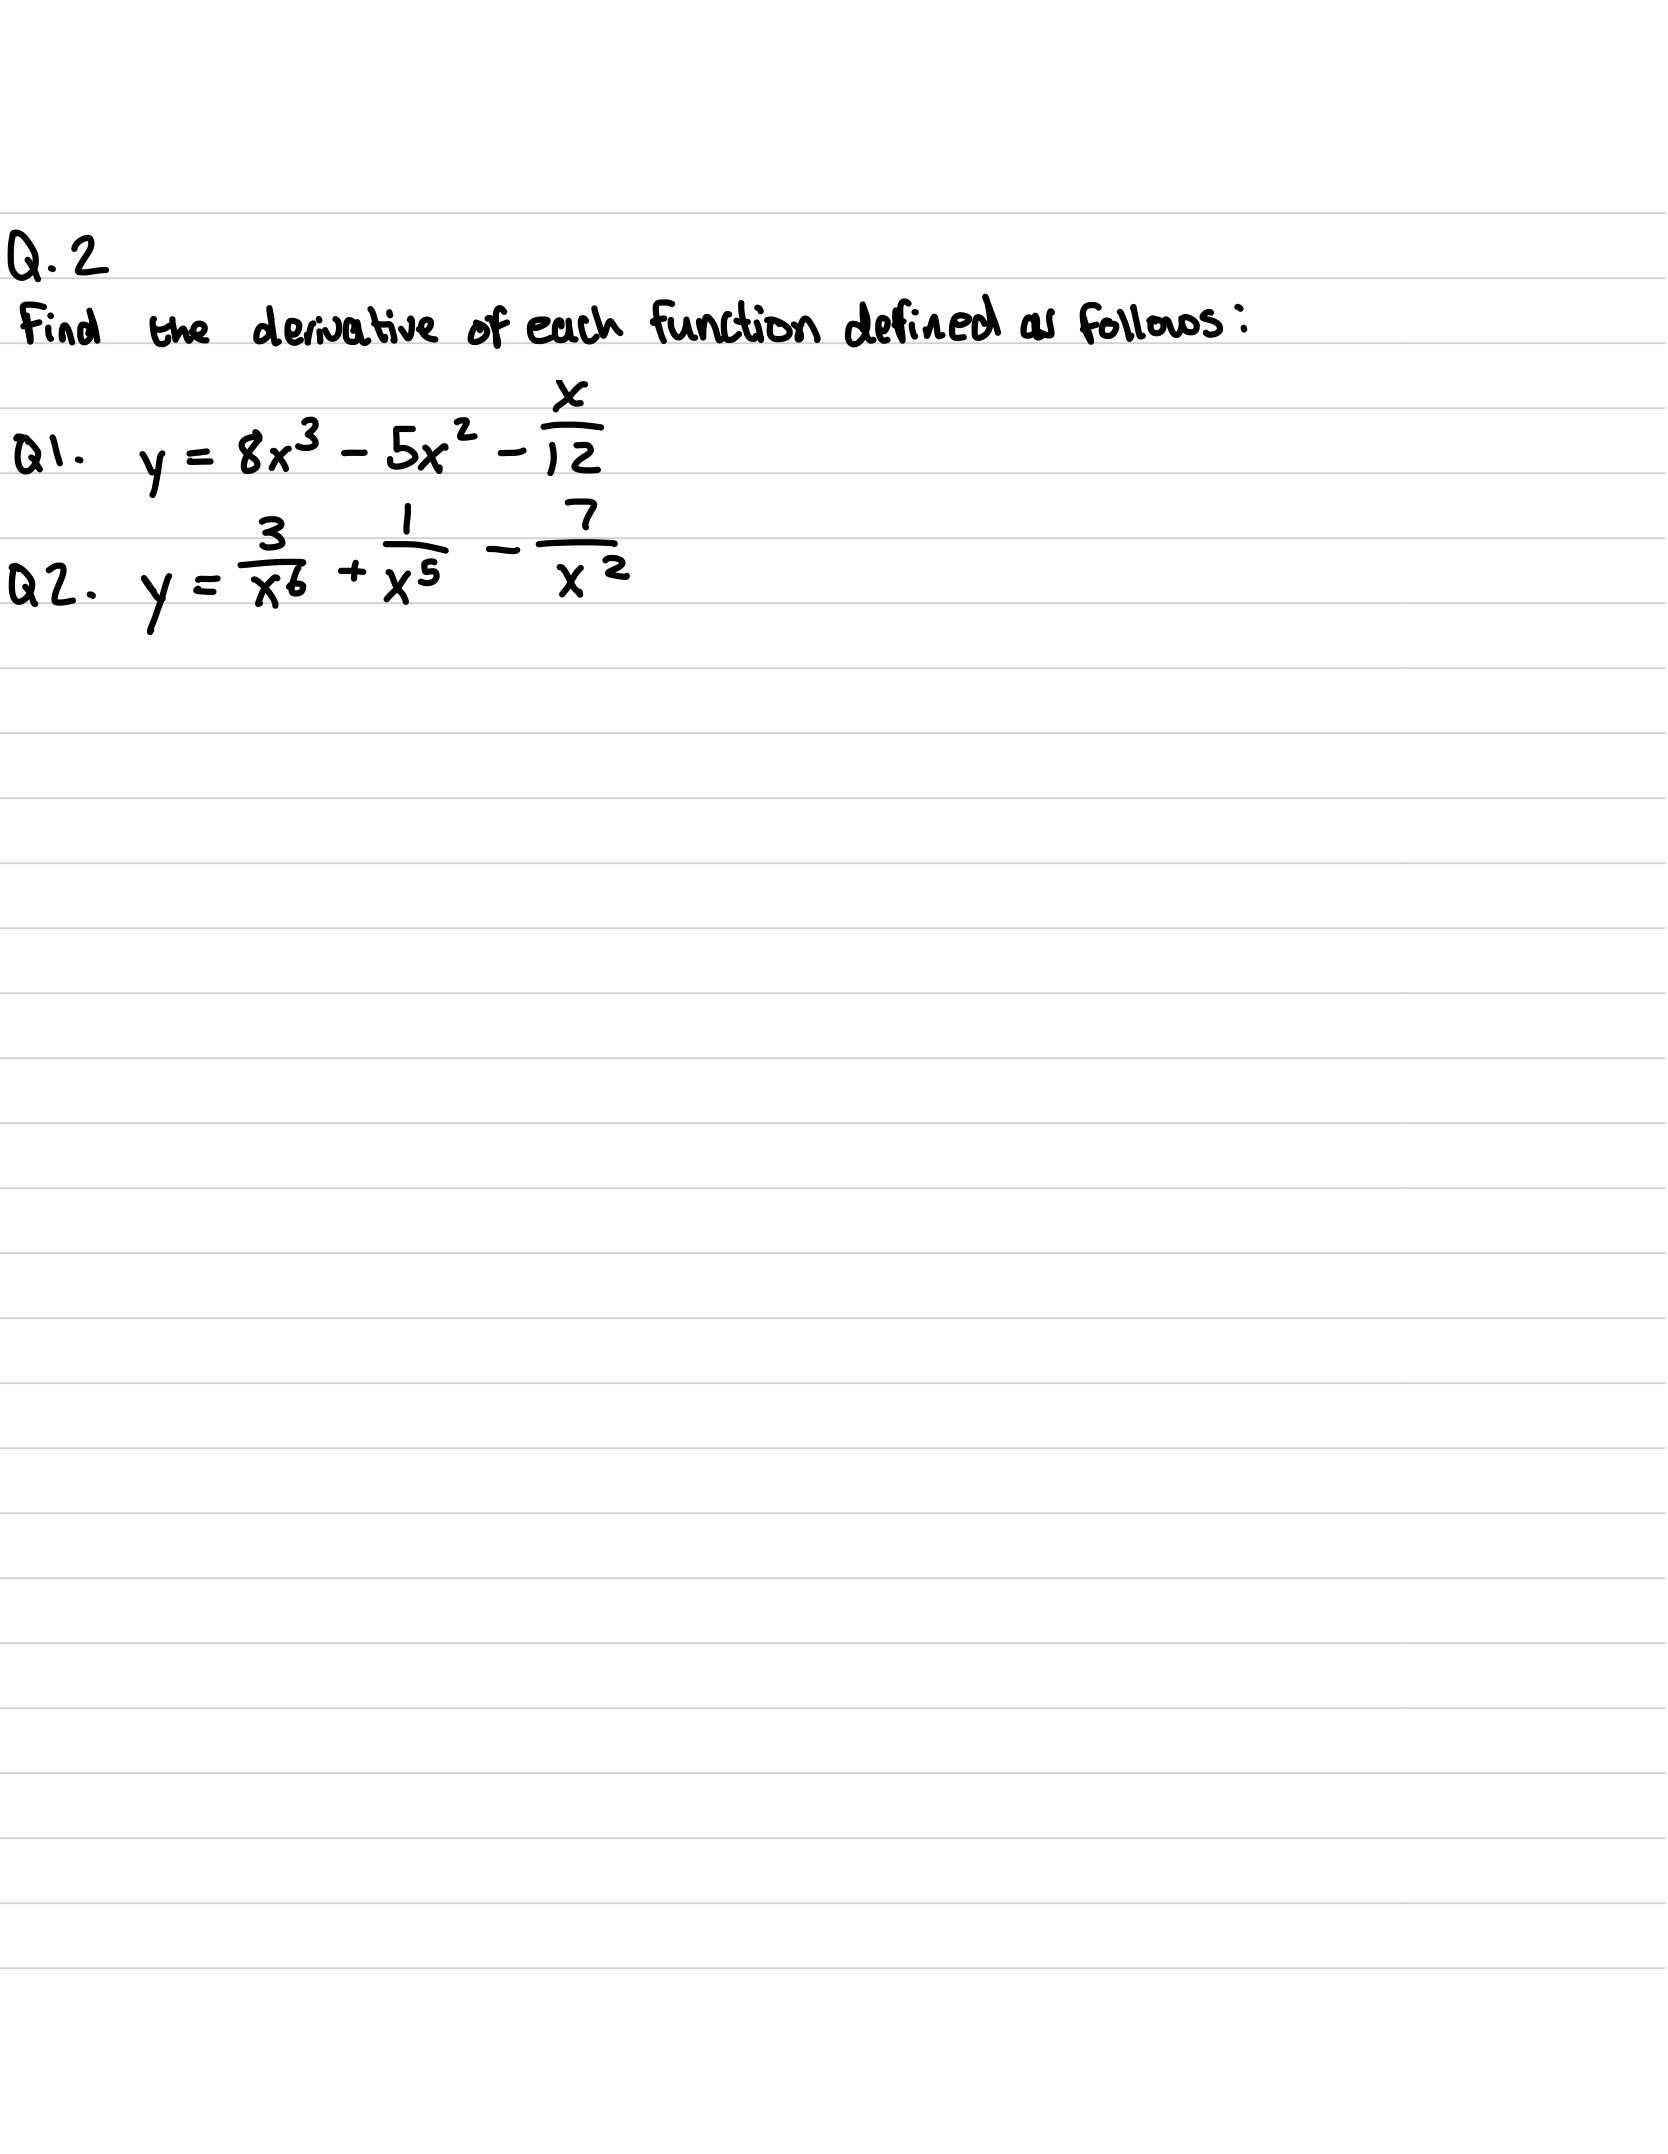 Q.2
Find the derivative of each function defined as follows:
Q1. y = 8x³ - 5x² - x/12
Q2. y = 3/x⁶ + 1/x⁵ - 7/x²